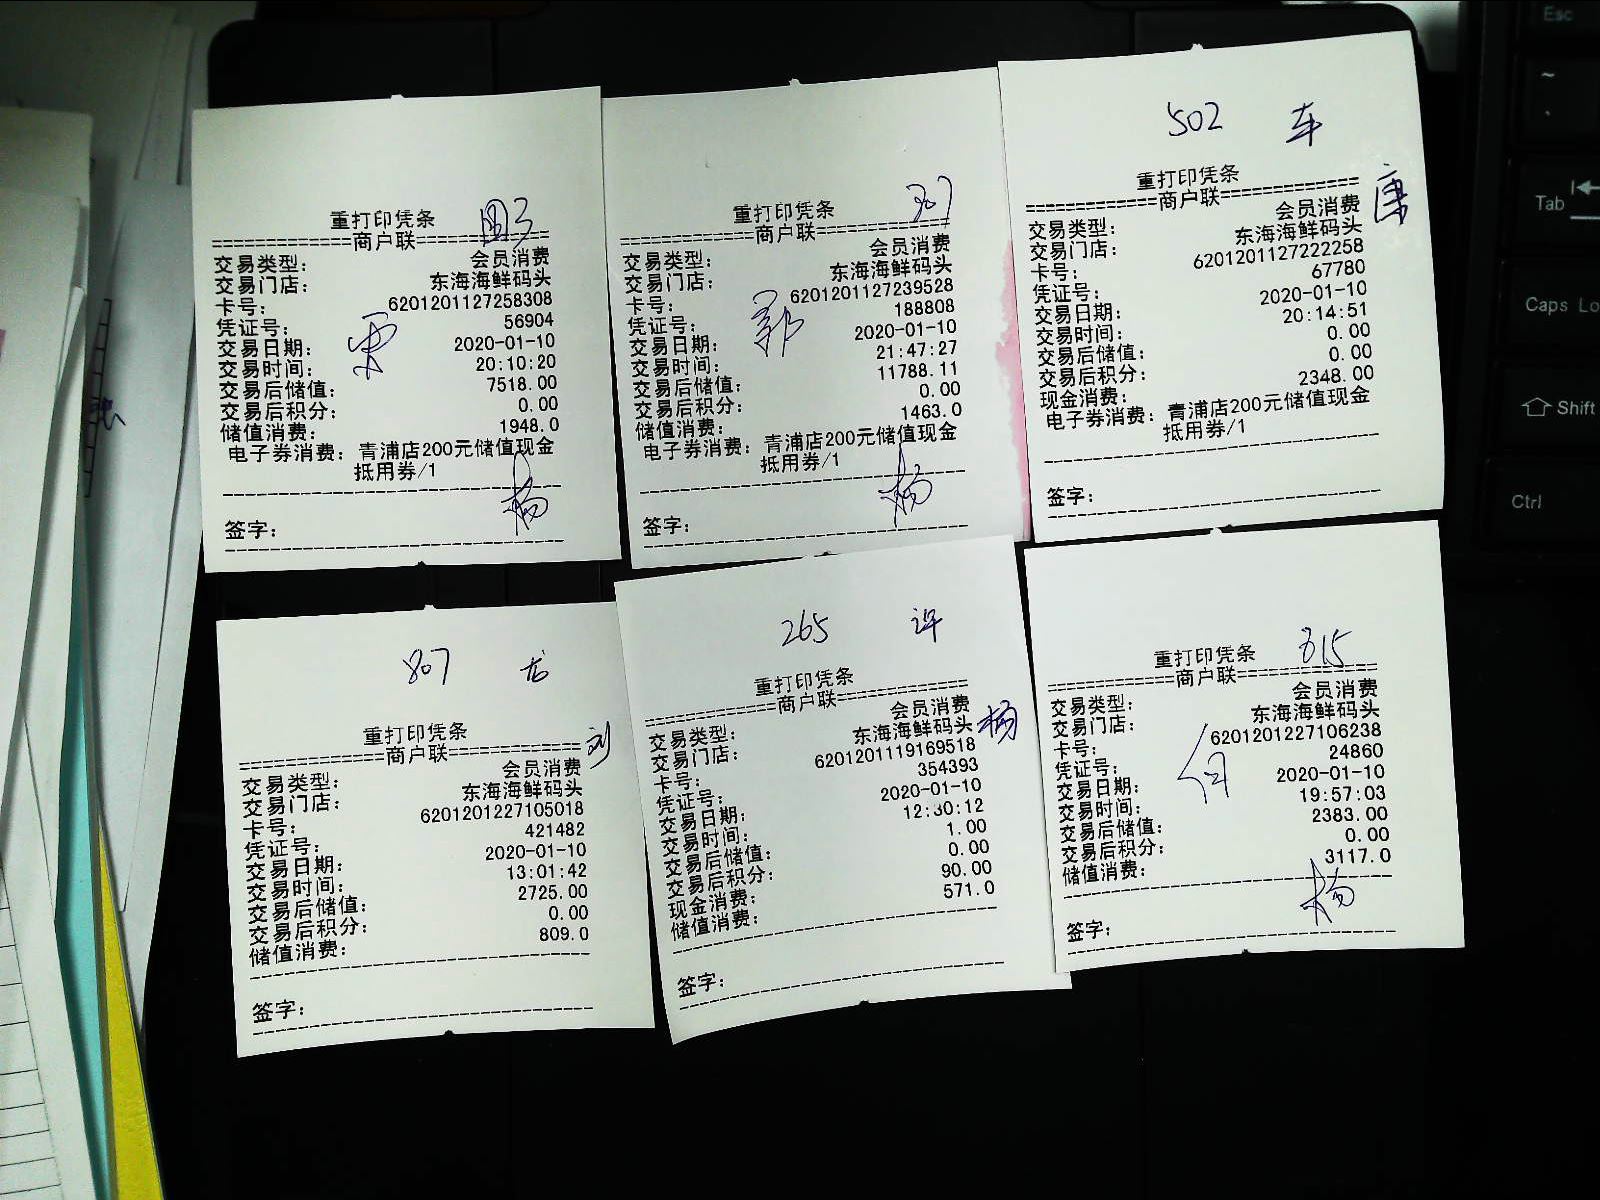 重打印凭条
圆3
商户联
交易类型: 会员消费
交易门店: 东海海鲜码头
卡号: 6201201127258308
凭证号: 56904
交易日期: 2020-01-10
交易时间: 20:10:20
交易后储值: 7518.00
交易后积分: 0.00
储值消费: 1948.0
电子券消费: 青浦店200元储值现金
抵用券/1
杨
签字:
重打印凭条
307
商户联
交易类型: 会员消费
交易门店: 东海海鲜码头
卡号: 6201201127239528
凭证号: 188808
郭
交易日期: 2020-01-10
交易时间: 21:47:27
交易后储值: 11788.11
交易后积分: 0.00
储值消费: 1463.0
电子券消费: 青浦店200元储值现金
抵用券/1
杨
签字:
502 车
重打印凭条
康
商户联
交易类型: 会员消费
交易门店: 东海海鲜码头
卡号: 6201201127222258
凭证号: 67780
交易日期: 2020-01-10
交易时间: 20:14:51
交易后储值: 0.00
交易后积分: 0.00
现金消费: 2348.00
电子券消费: 青浦店200元储值现金
抵用券/1
签字:
807 龙
重打印凭条
刘
商户联
交易类型: 会员消费
交易门店: 东海海鲜码头
卡号: 6201201227105018
凭证号: 421482
交易日期: 2020-01-10
交易时间: 13:01:42
交易后储值: 2725.00
交易后积分: 0.00
储值消费: 809.0
签字:
265 许
重打印凭条
商户联
杨
交易类型: 会员消费
交易门店: 东海海鲜码头
卡号: 6201201119169518
凭证号: 354393
交易日期: 2020-01-10
交易时间: 12:30:12
交易后储值: 1.00
交易后积分: 0.00
现金消费: 90.00
储值消费: 571.0
签字:
重打印凭条
315
商户联
交易类型: 会员消费
交易门店: 东海海鲜码头
卡号: 6201201227106238
凭证号: 24860
何
交易日期: 2020-01-10
交易时间: 19:57:03
交易后储值: 2383.00
交易后积分: 0.00
储值消费: 3117.0
杨
签字:
Esc
~
Tab
Caps Lo
Shift
Ctrl